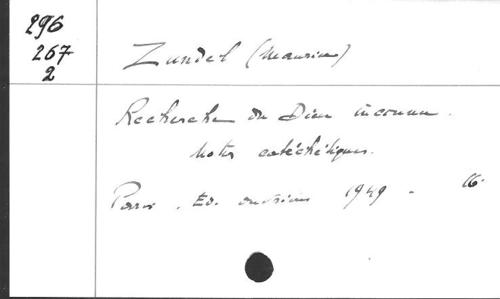 296
267
2
Zundel (Maurice)
Recherche du Dieu inconnu.
Notes catéchétiques.
Paris, Ed. ouvrières 1949 - 16.